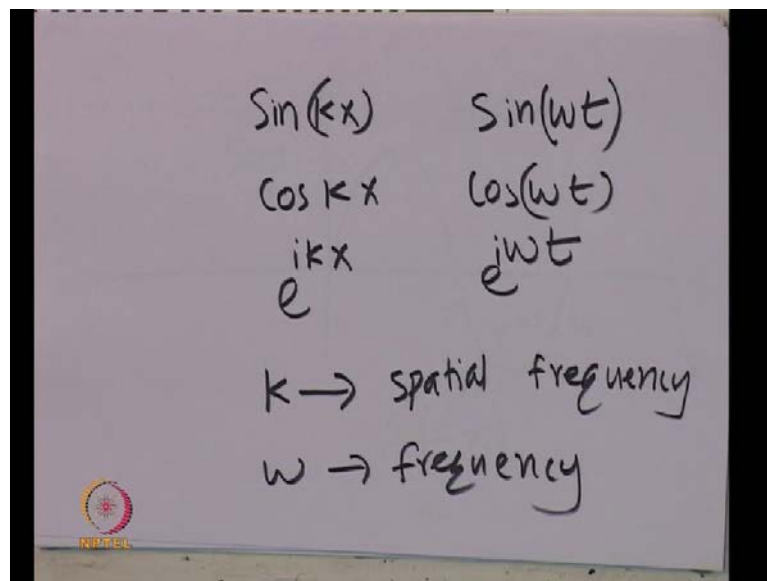 Sin(kx) Sin(wt)
Cos kx Cos(wt)
e^ikx e^iwt
k → spatial frequency
w → frequency
NPTEL